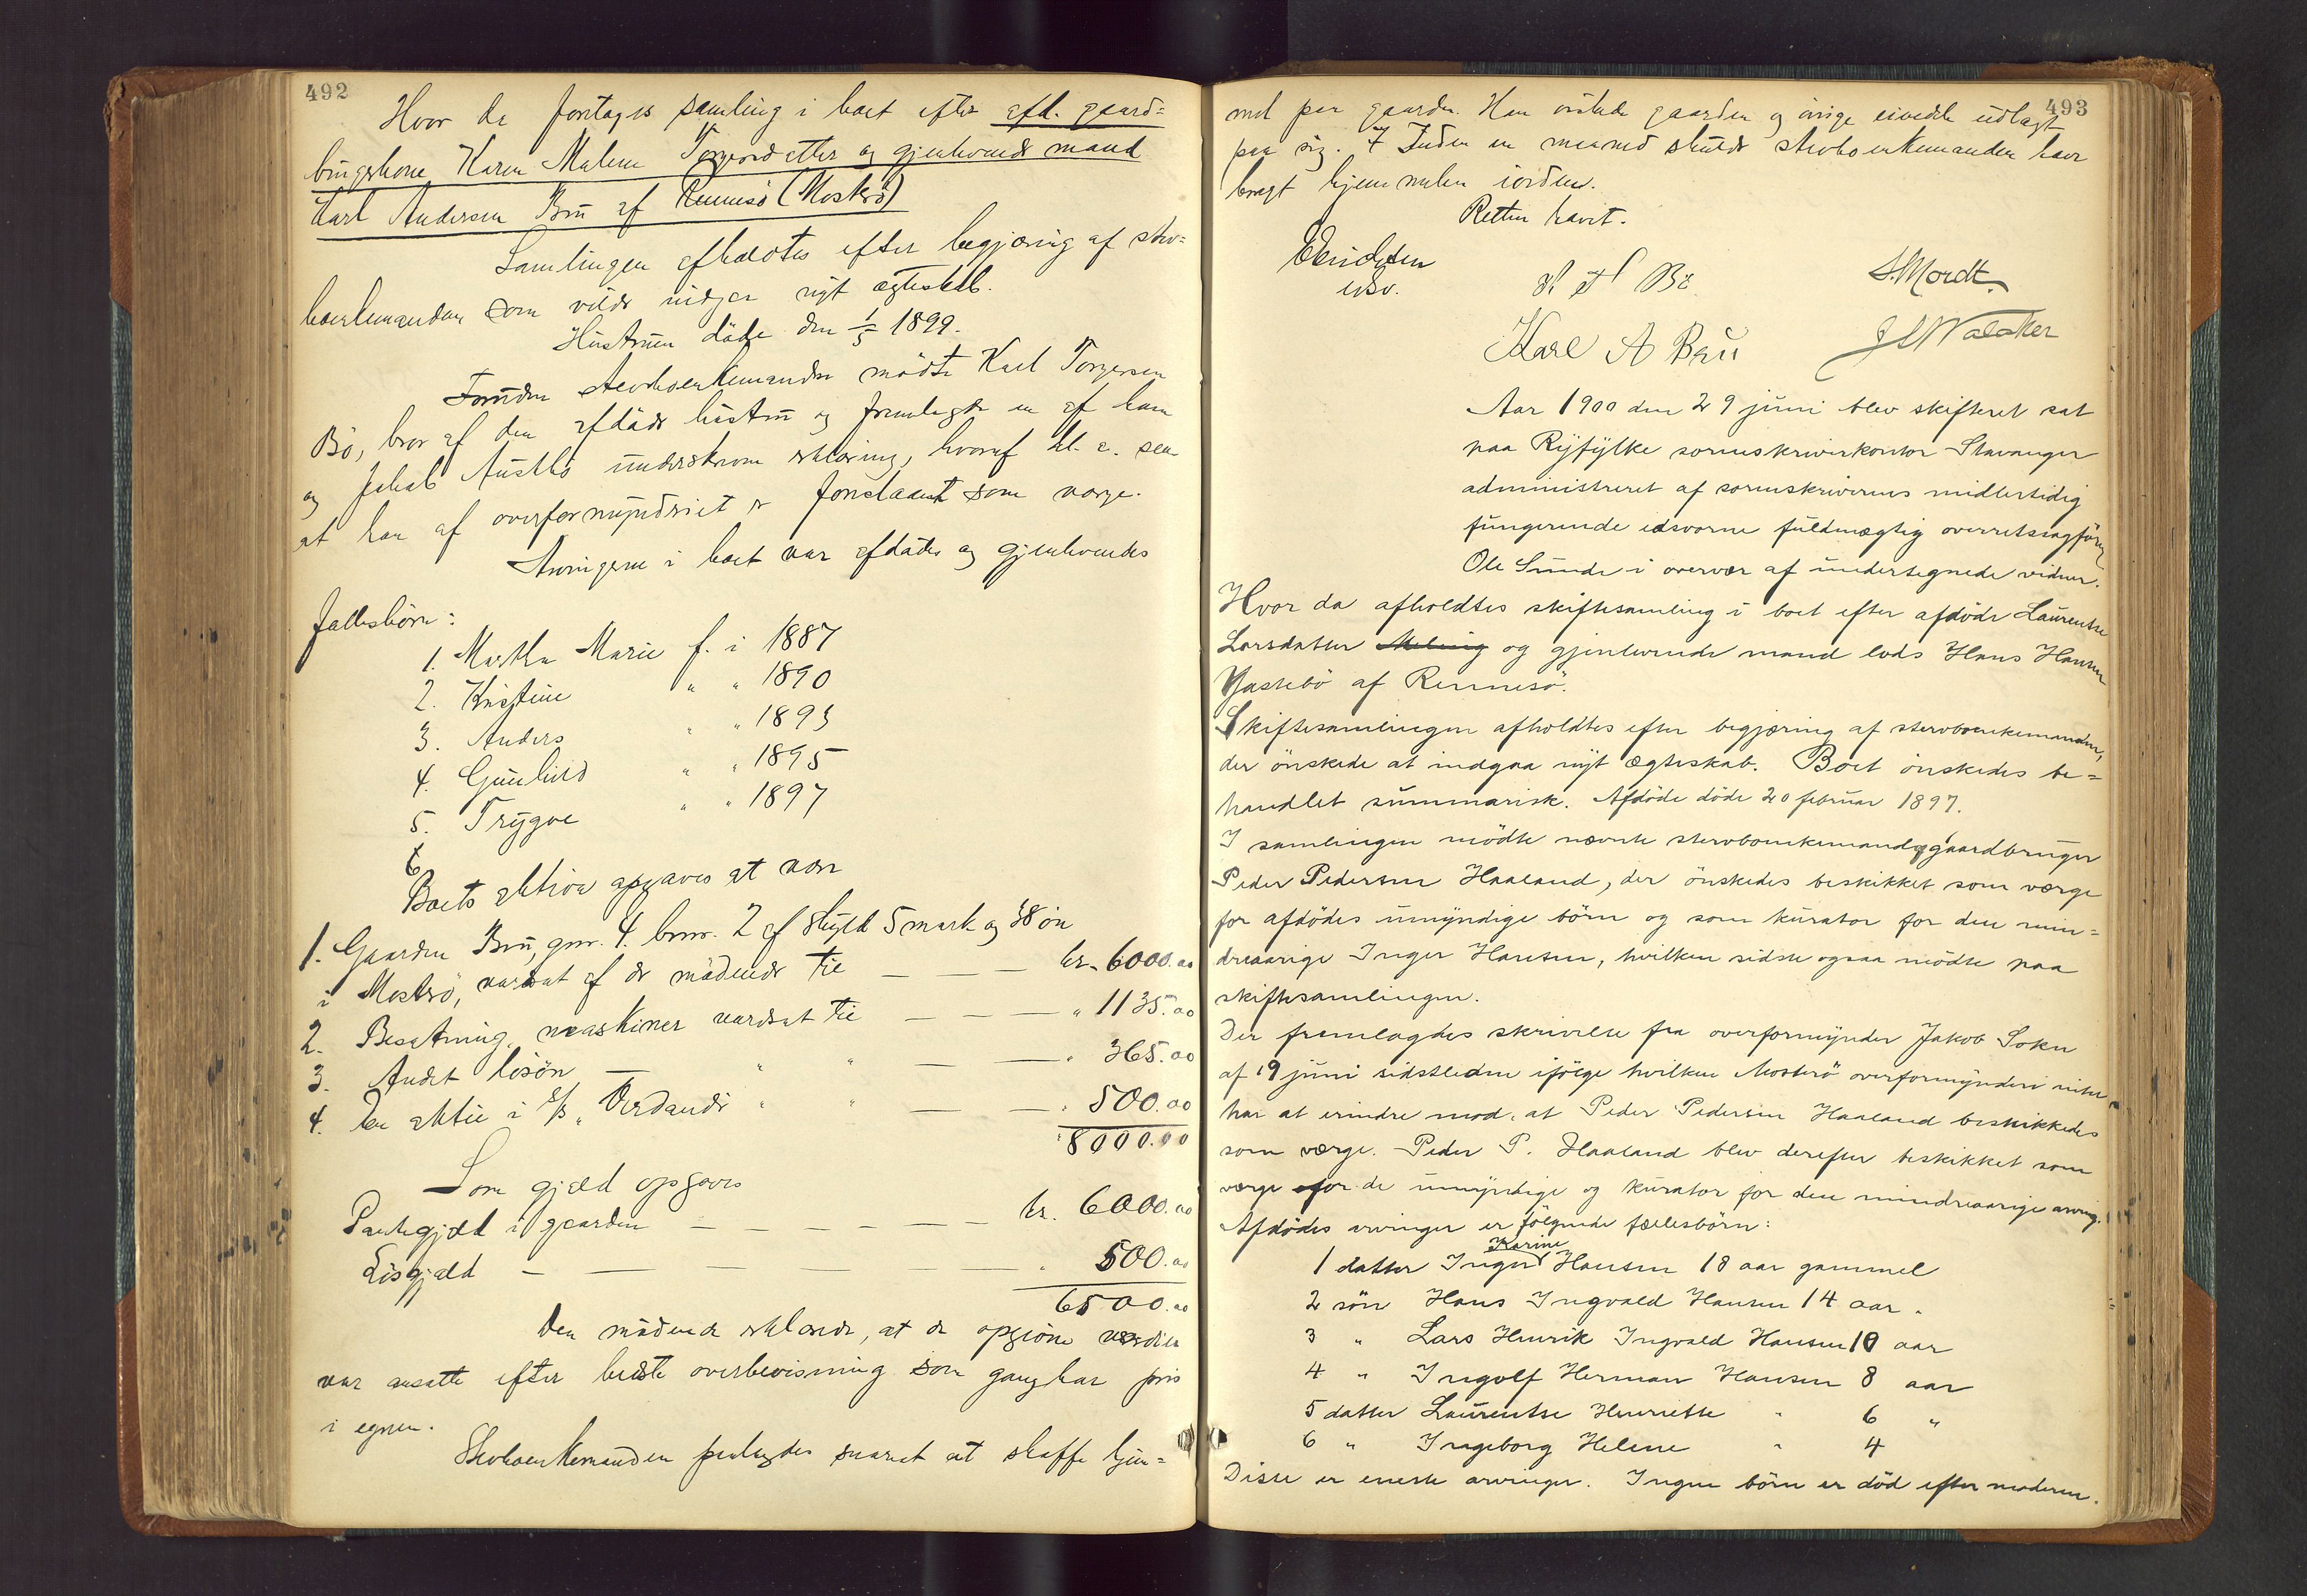 492
Hvor da foretages samling i boet efter afd. gaard=
brugerkone Karen Malene Torgersdatter og gjenlevende mand
Karl Andersen Bru af Rennesö (Mosterö)
Samlingen afholdtes efter begjæring af sterv=
boenkemanden som vilde indgaa nyt ægteskab.
Hustruen döde den 1/5 1899.
Foruden stervboenkemanden mödte Karl Torgersen
Bö, bror af den afdöde hustru og fremlagde en af ham
og Jakob Austbö underskreven erklæring, hvoraf bl. a. sees
at han af overformynderiet er foreslaaet som værge.
Arvingerne i boet var afdödes og gjenlevendes
fællesbörn:
1. Martha Marie f. i 1887
2. Kristine " " 1890
3. Anders " " 1893
4. Gunhild " " 1895
5. Trygve " " 1897
6
Boets aktiva opgaves at være
1. Gaarden Bru, gnr. 4. brnr. 2 af skyld 5 mark og 38 öre
i Mosterö, værdsat af de mödende til — — — kr. 6000.00
2. Besætning, maskiner værdsat til — — — " 1135.00
3. Andet lösöre — " " — — " 365.00
4. En aktie i S/S "Verdandi " " — — " 500.00
" 8000.00
Som gjæld opgaves
Pantegjæld i gaarden — — — — — — kr. 6000.00
Lösgjæld — — — — — — " 500.00
6500.00
Den mödende erklærede, at de opgivne værdier
var ansatte efter bedste overbevisning som gangbar pris
i egnen.
Stervboenkemanden paalagdes snarest at skaffe hjem=
493
mel paa gaarden. Han önskede gaarden og övrige eiendele udlagt
paa sig. Inden en maaned skulde stervboenkemanden have
bragt hjemmelen iorden.
Retten hævet.
Erichsen
edsv.
K T Bö
S. Mordt.
Karl A Bru
J S Walaker
Aar 1900 den 29 juni blev skifteret sat
paa Ryfylke sorenskriverkontor Stavanger
administreret af sorenskriverens midlertidig
fungerende edsvorne fuldmægtig overretssagförer
Ole Sunde i overvær af undertegnede vidner.
Hvor da afholdtes skiftesamling i boet efter afdöde Laurentse
Larsdatter og gjenlevende mand lods Hans Hansen
Vastebö af Rennesö.
Skiftesamlingen afholdtes efter begjæring af stervboenkemanden,
der önskede at indgaa nyt ægteskab. Boet önskedes be=
handlet summarisk. Afdöde döde 20 februar 1897.
I samlingen mödte nævnte stervboenkemand og gaardbruger
Peder Pedersen Haaland, der önskedes beskikket som værge
for afdödes umyndige börn og som kurator for den min=
dreaarige Inger Hansen, hvilken sidste ogsaa mödte paa
skiftesamlingen.
Der fremlagdes skrivelse fra overformynder Jakob Sokn
af 19 juni sidstleden ifölge hvilken Mosterö overformynderi intet
har at erindre mod, at Peder Pedersen Haaland beskikkedes
som værge. Peder P. Haaland blev derefter beskikket som
værge for de umyndige og kurator for den mindreaarige arving.
Afdödes arvinger er fölgende fællesbörn:
Karine
1 datter Inger Hansen 18 aar gammel
2 sön Hans Ingvald Hansen 14 aar "
3 " Lars Henrik Ingvald Hansen 10 aar
4 " Ingolf Herman Hansen 8 aar
5 datter Laurentse Henriette " 6 "
6 " Ingeborg Helene " 4
Disse er eneste arvinger. Ingen börn er död efter moderen.